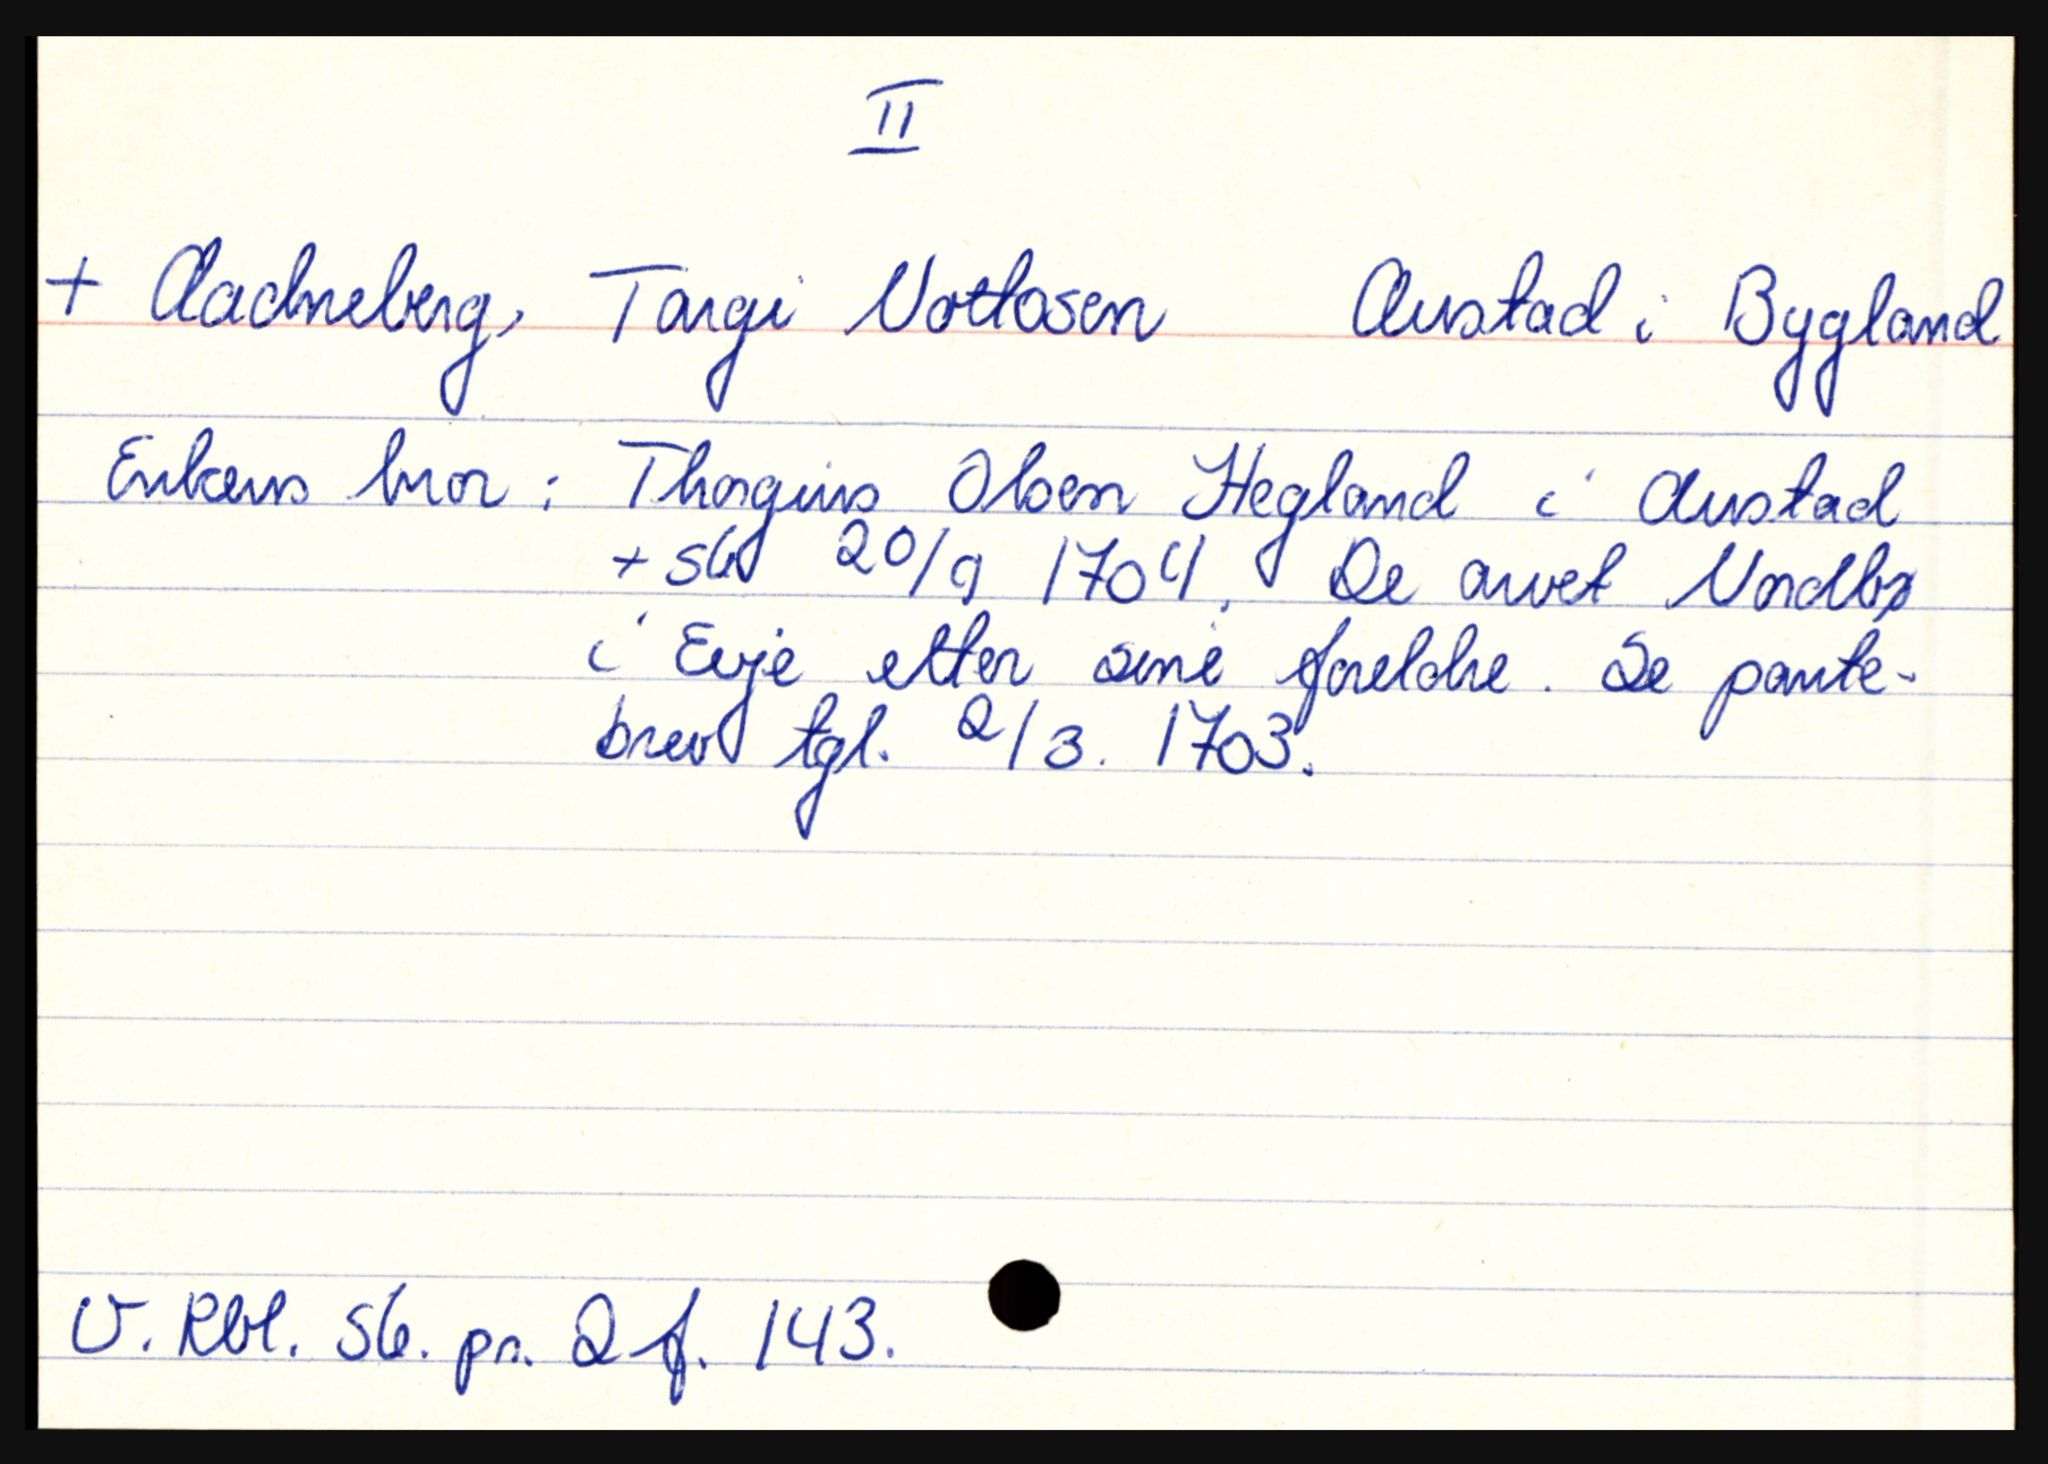 II
+ Aadneberg, Targi Nottosen Austad i Bygland
Enkens bror: Thorgius Olsen Hegland i Austad
+ sk 20/9 1704. De arvet Nordbø
i Evje etter sine foreldre. Se pante-
brev tgl. 2/3. 1703.
V. Rbl. sk. pr. 2 f. 143.